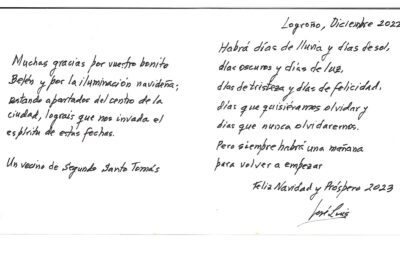 Muchas gracias por vuestro bonito
Belén y por la iluminación navideña;
estando apartados del centro de la
ciudad, lográis que nos invada el
espíritu de estas fechas.
Un vecino de Segundo Santo Tomás
Logroño, Diciembre 2022
Habrá días de lluvia y días de sol,
días oscuros y días de luz,
días de tristeza y días de felicidad,
días que quisiéramos olvidar y
días que nunca olvidaremos.
Pero siempre habrá una mañana
para volver a empezar
Feliz Navidad y Próspero 2023
José Luis